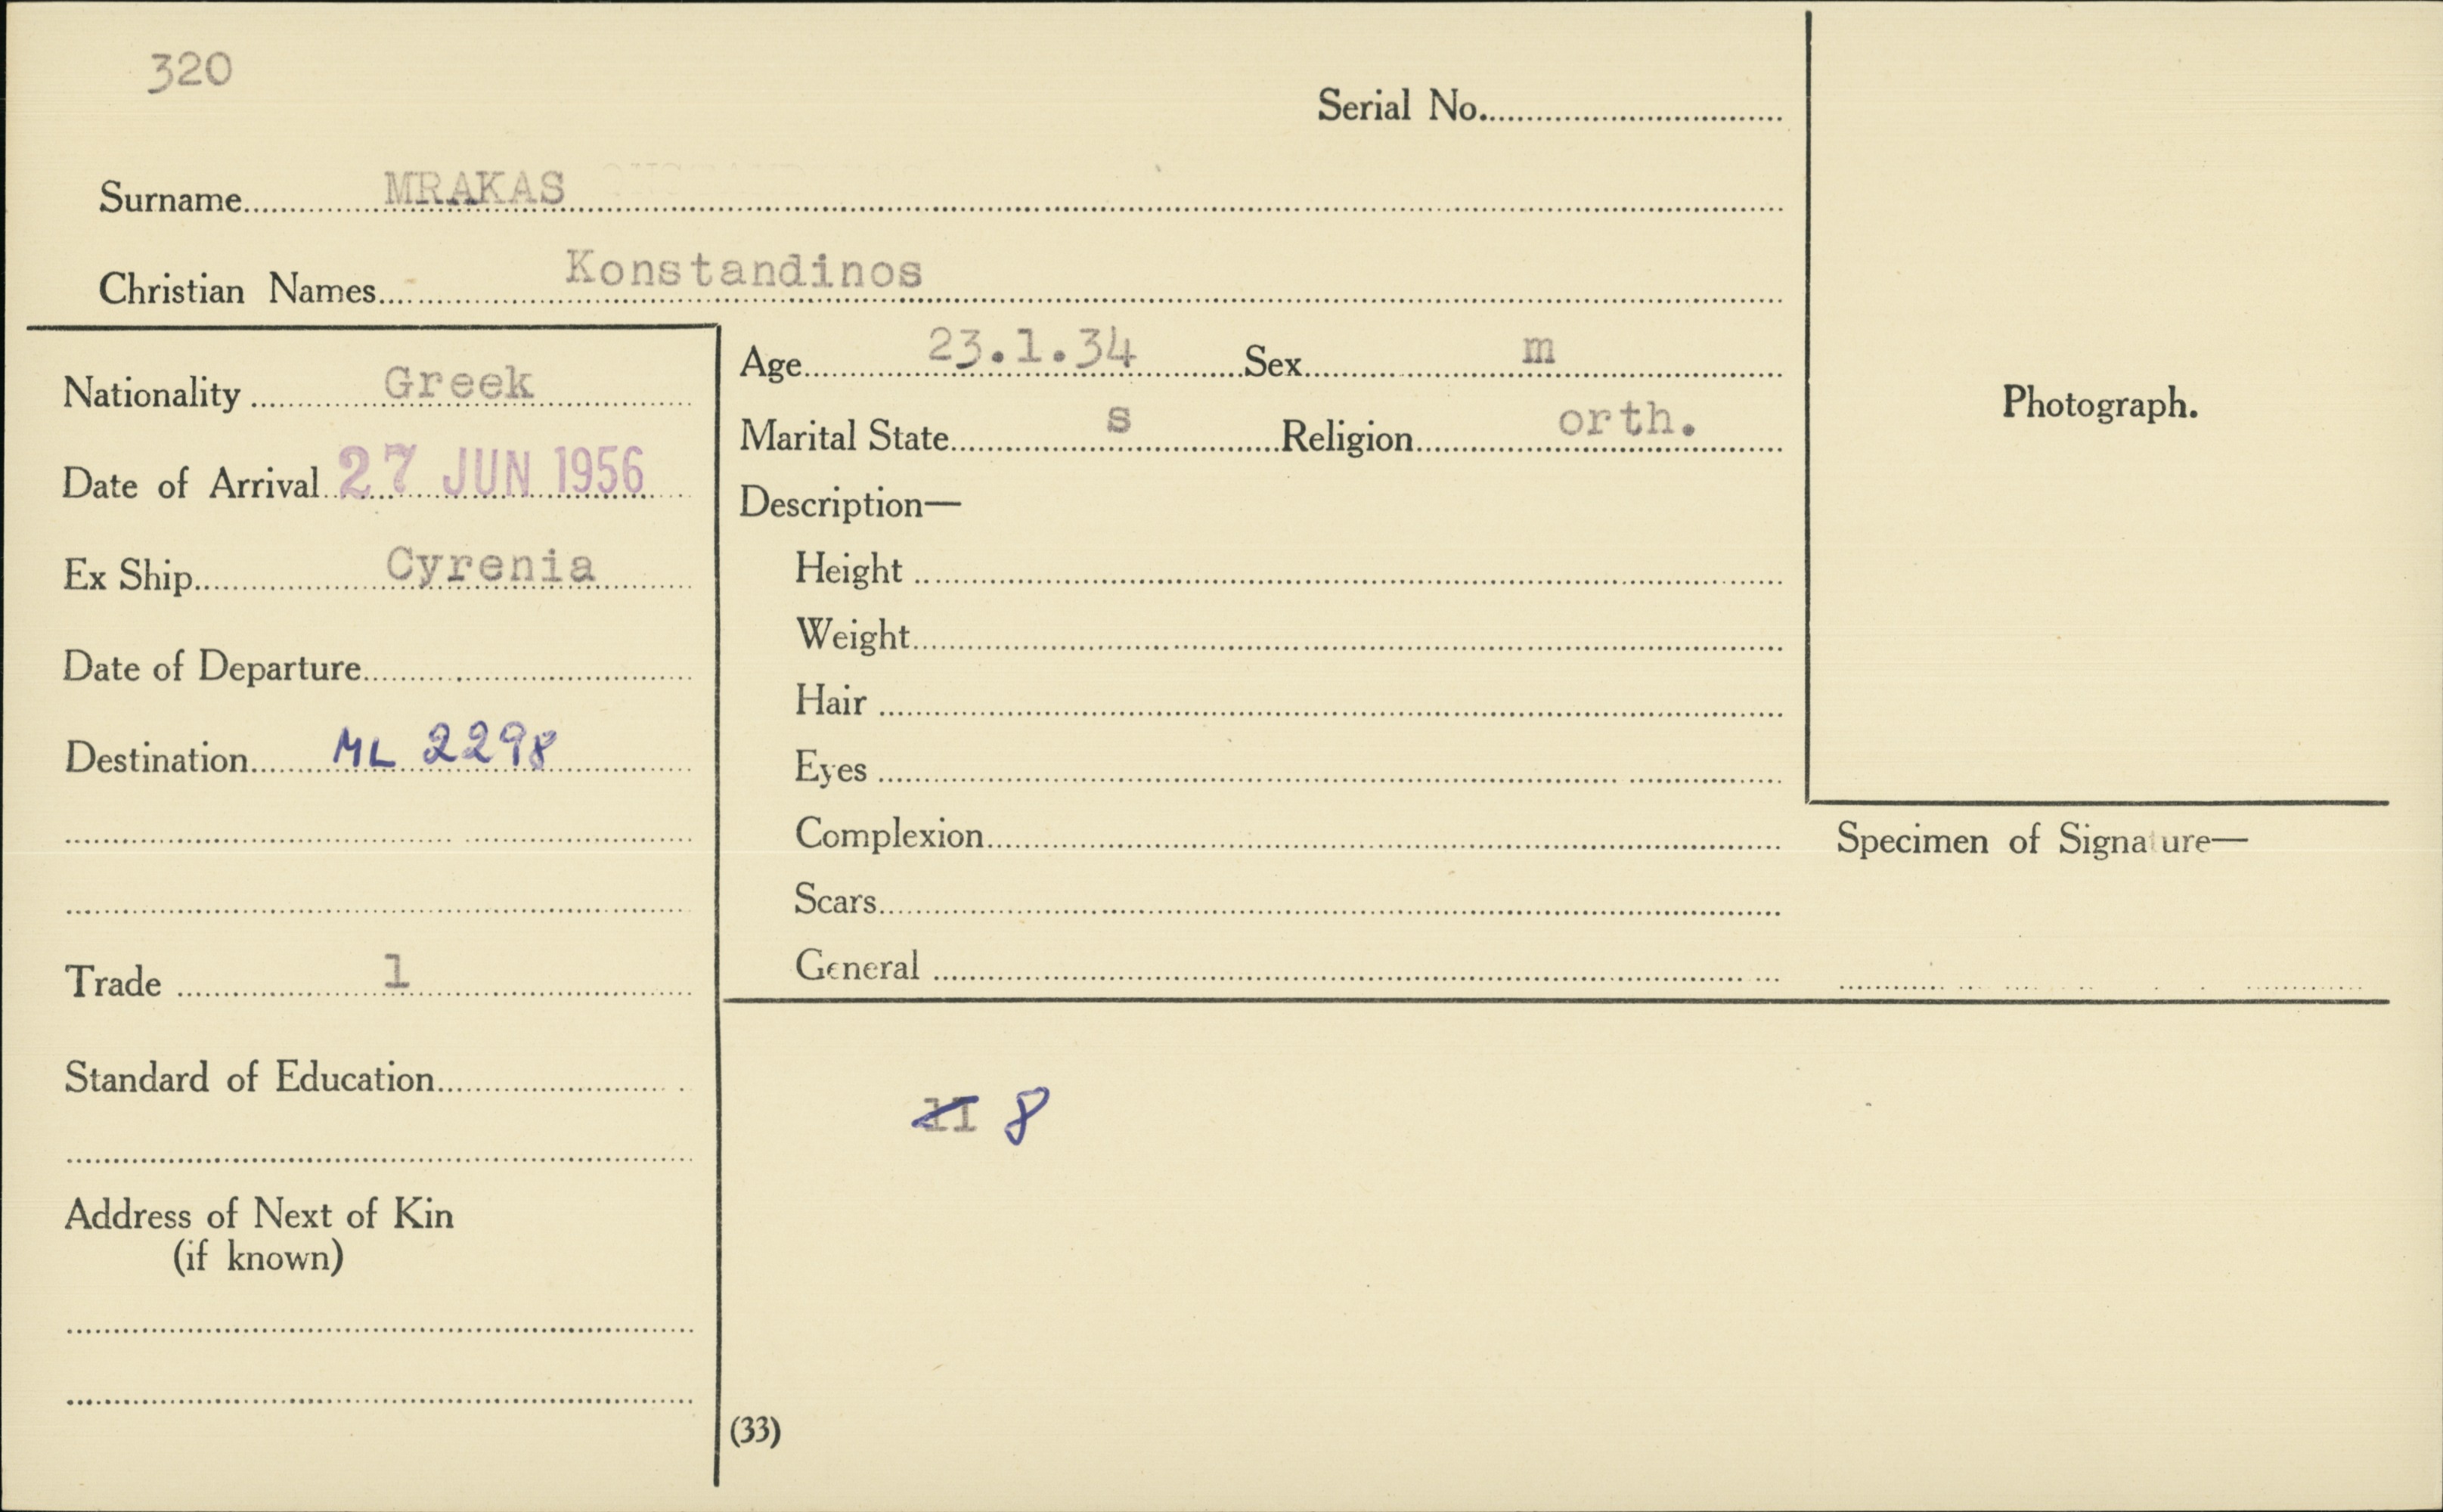 320
Serial No.
Surname MRAKAS
Christian Names Konstandinos
Nationality Greek
Date of Arrival 27 JUN 1956
Ex Ship Cyrenia
Date of Departure
Destination ML 2298
Trade 1
Standard of Education
Address of Next of Kin
(if known)
Age 23.1.34 Sex m
Marital State s Religion orth.
Description—
Height
Weight
Hair
Eyes
Complexion
Scars
General
Photograph.
Specimen of Signature—
11 8
(33)